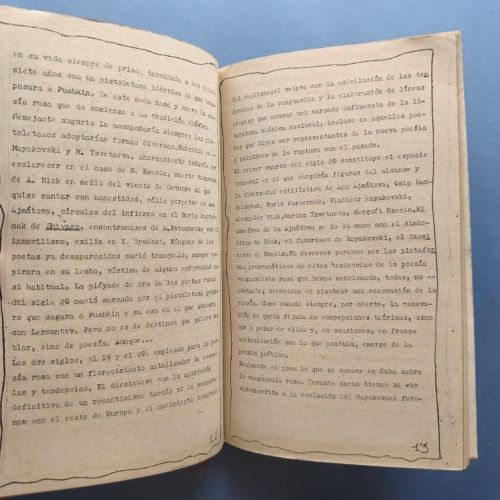 en su vida siempre de prisa, terminada a los
siete años con un pistoletazo idéntico al que
pasara a Pushkin. De este modo nace y muere la poe
sía rusa que da comienzo a la tradición clásica.
Semejante augurio la acompañaría siempre; los pis
toletazos adoptarían formas diversas. Suicidio en
Mayakovski y M. Tsvetaeva, ahorcamiento todavía por
esclarecer en el caso de S. Esenin, muerte temprana
de A. Blok en medio del viento de Octubre al que
quiso cantar con honestidad, exilio perpetuo en Ana
Ajmátova, círculos del infierno en el Boris Paster-
nak de Zhivago, encontronazos de E. Evtushenko con el
inmovilismo, exilio en Y. Brodski. Ninguno de los
poetas ya desaparecidos murió tranquilo, aunque ex
pirara en su lecho, víctima de alguna enfermedad ca
si habitual. La pléyade de oro de los poetas rusos
del siglo 20 nació marcada por el pistoletazo prime
ro que cegara a Pushkin y su eco en el que acabara
con Lermontov. Pero no es de destinos que quiero ha
blar, sino de poesía. Aunque...
Los dos siglos, el 19 y el 20, empiezan para la poe
sía rusa con un florecimiento catalizador de escue
las y tendencias. El diecinueve con la aparición
definitiva de un romanticismo tardío si lo compara-
mos con el resto de Europa y el nacimiento temprano
12
del realismo; el veinte con la asimilación de las ten
dencias de la vanguardia y la elaboración de líneas
propias que acusan una marcada influencia de la li-
teratura clásica nacional, incluso en aquellos poe-
tas que dicen ser representantes de la nueva poesía
y paladines de la ruptura con el pasado.
El primer cuarto del siglo 20 constituye el espacio
temporal en el que surgirán figuras del alcance y
la diversidad estilística de Ana Ajmátova, Osip Man-
delshtam, Boris Pasternak, Vladimir Mayakovski,
Alexander Blok, Marina Tsvetaeva, Serguéi Esenin. El
akmeísmo de la Ajmátova se da la mano con el simbo-
lismo de Blok, el futurismo de Mayakovski, el imagi
nismo de Esenin. Si diversos parecen ser las platafor
mas programáticas de estas tendencias de la poesía
vanguardista rusa que hemos mencionado, todas, no --
obstante, coinciden en plantear una renovación de la
poesía. Como sucede siempre, por cierto, la renova-
ción no queda fijada en concepciones teóricas, sino
que a pesar de ellas y, en ocasiones, en franca
contradicción con lo que postula, emerge de la
praxis poética.
Realmente es poco lo que se conoce en Cuba sobre
la vanguardia rusa. Durante mucho tiempo se vio
circunscrita a la evolución del Mayakovski futu-
13